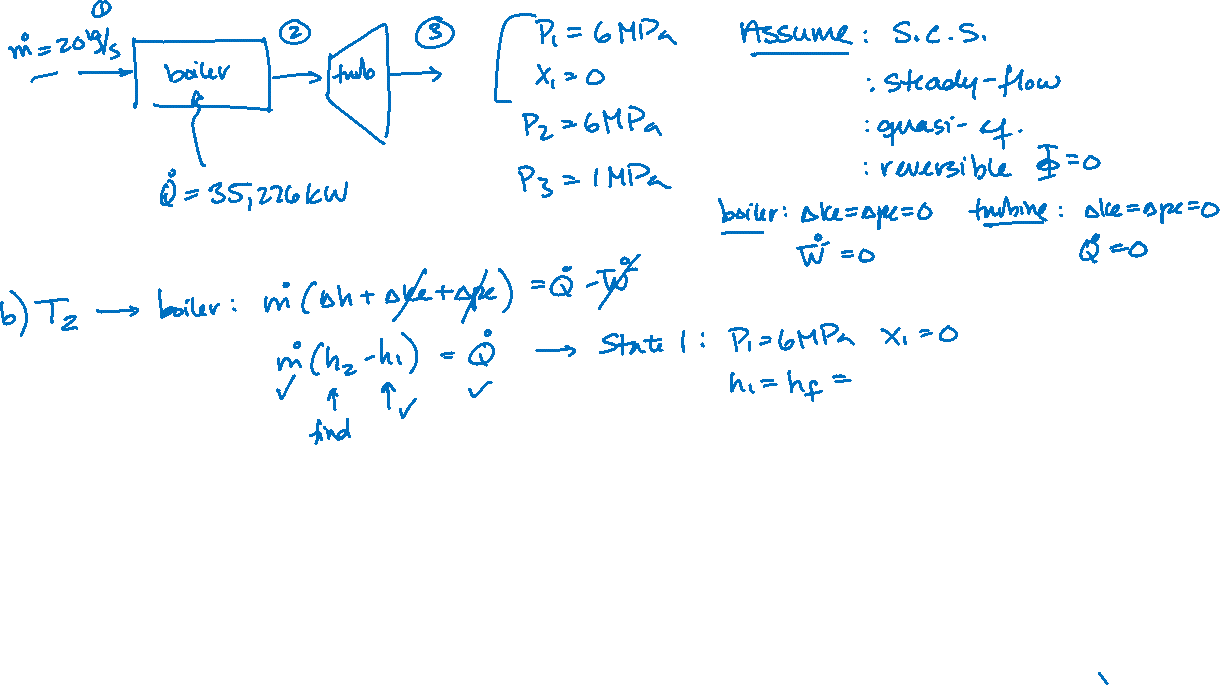 ①
ṁ = 20 kg/s
②
③
boiler
turb
Q̇ = 35,226 kW
P₁ = 6 MPa
x₁ = 0
P₂ = 6 MPa
P₃ = 1 MPa
Assume: S.C.S.
: steady-flow
: quasi-eq.
: reversible Φ = 0
boiler: Δke = Δpe = 0
Ẇ = 0
turbine: Δke = Δpe = 0
Q̇ = 0
b) T₂ → boiler: ṁ (Δh + Δke + Δpe) = Q̇ - Ẇ⁰
ṁ (h₂ - h₁) = Q̇ → State 1: P₁ = 6 MPa x₁ = 0
✓ ↑ ↑ ✓ ✓
find
h₁ = hf =